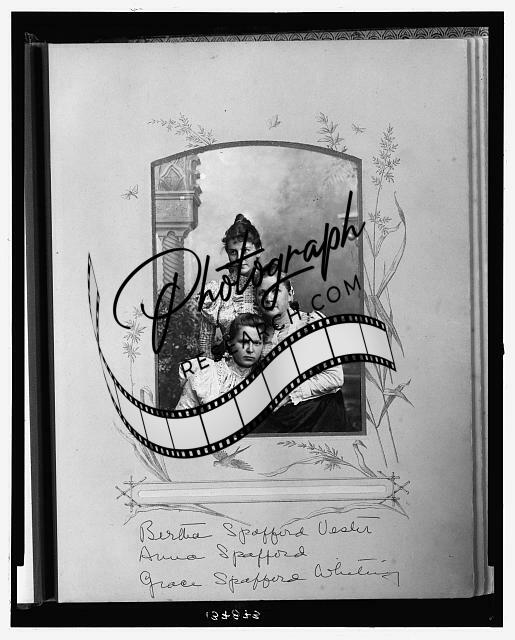 Photograph
RESEARCH.COM
Bertha Spafford Vester
Anna Spafford
Grace Spafford Whiting